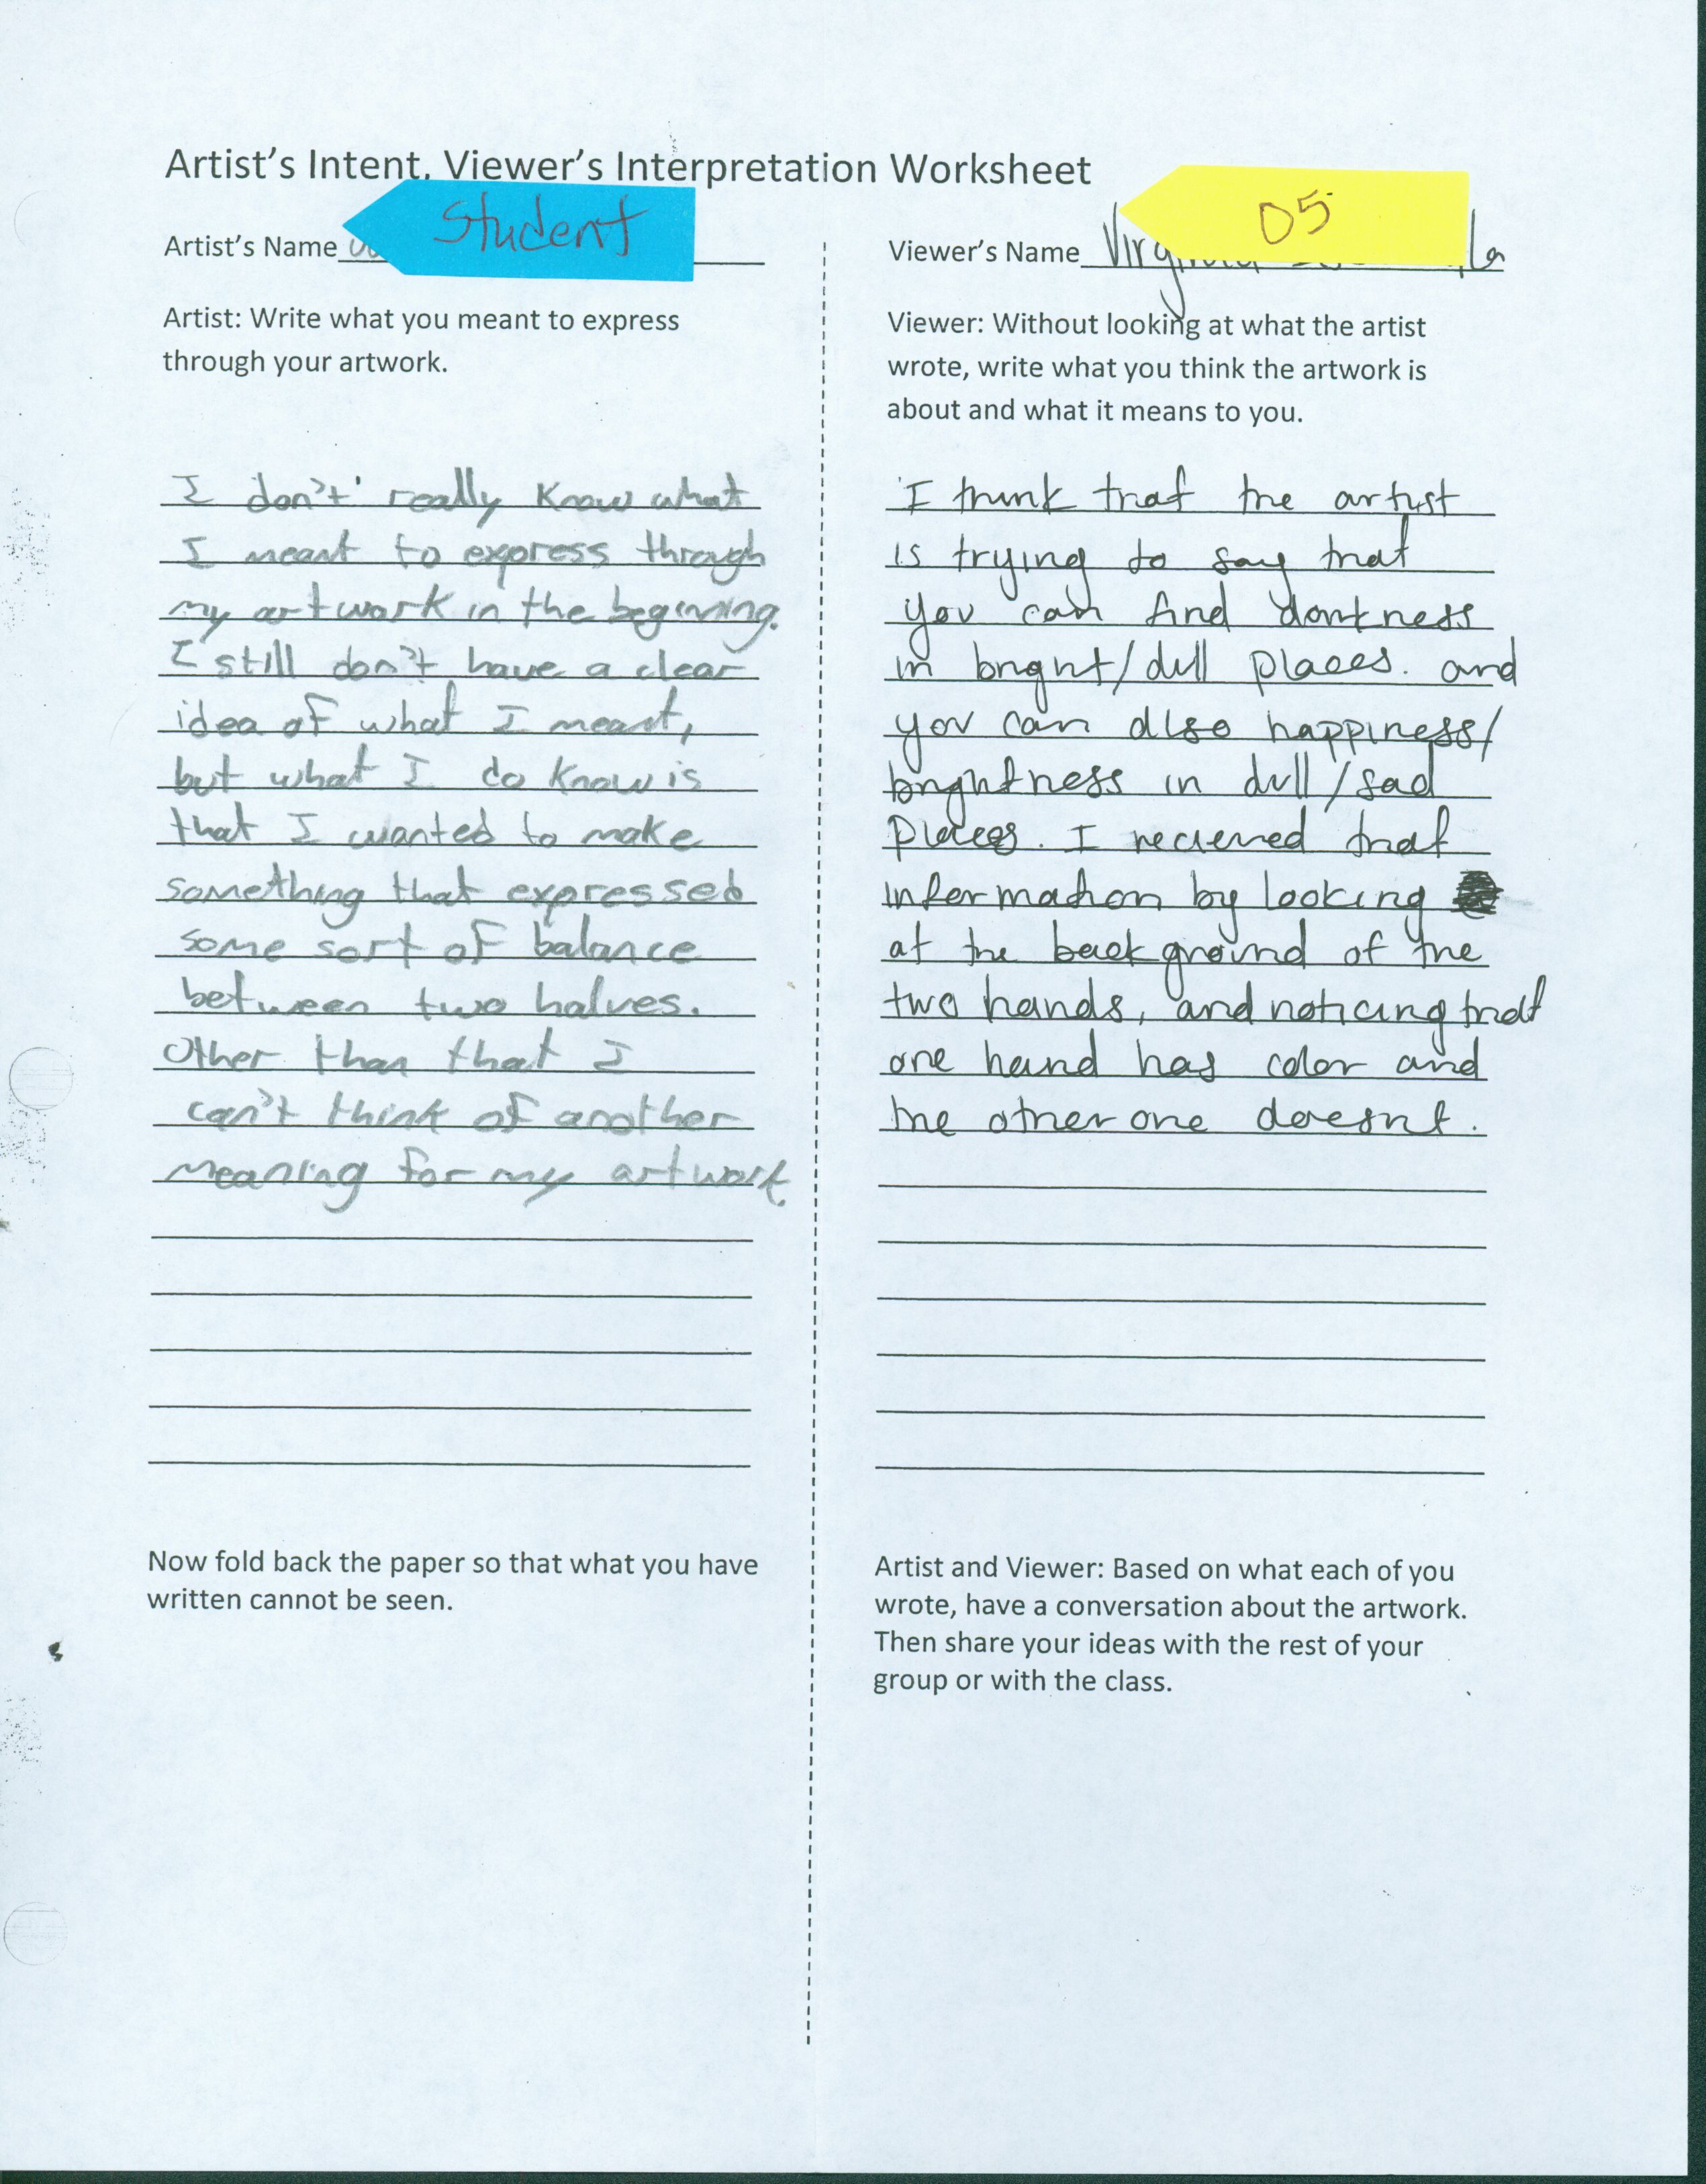 Artist's Intent, Viewer's Interpretation Worksheet
Student
Artist's Name
Artist: Write what you meant to express
through your artwork.
I don't really know what
I meant to express through
my artwork in the beginning.
I still don't have a clear
idea of what I meant,
but what I do know is
that I wanted to make
something that expressed
some sort of balance
between two halves.
Other than that I
can't think of another
meaning for my artwork.
Now fold back the paper so that what you have
written cannot be seen.
05
Viewer's Name
Viewer: Without looking at what the artist
wrote, write what you think the artwork is
about and what it means to you.
I think that the artist
is trying to say that
you can find darkness
in bright/dull places. and
you can also happiness/
brightness in dull/sad
places. I recieved that
information by looking
at the background of the
two hands, and noticing that
one hand has color and
the other one doesnt.
Artist and Viewer: Based on what each of you
wrote, have a conversation about the artwork.
Then share your ideas with the rest of your
group or with the class.